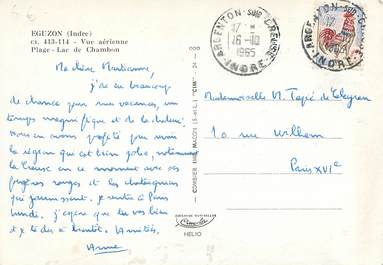 EGUZON (Indre)
cs. 413-114 - Vue aérienne
Plage - Lac de Chambon
Ma chère Marianne,
j'ai eu beaucoup
de chance pour mes vacances, un
temps magnifique et de la chaleur.
Nous en avons profité pour voir
la région qui est bien jolie, notamment
la Creuse en ce moment avec ses
fougères rouges et les chataigniers
qui jaunissent. Je rentre à Paris
lundi. J'espère que tu vas bien
et te dis à bientôt. Amitiés,
Anne
COMBIER IMP. MACON (S.-et-L.) "CIM"
ARGENTON SUR CREUSE
17 H
16-10
1965
INDRE
ARGENTON SUR CREUSE
INDRE
Mademoiselle M. Tapié de Céleyran
10 rue Wilhem
Paris XVIe
Cim
HELIO